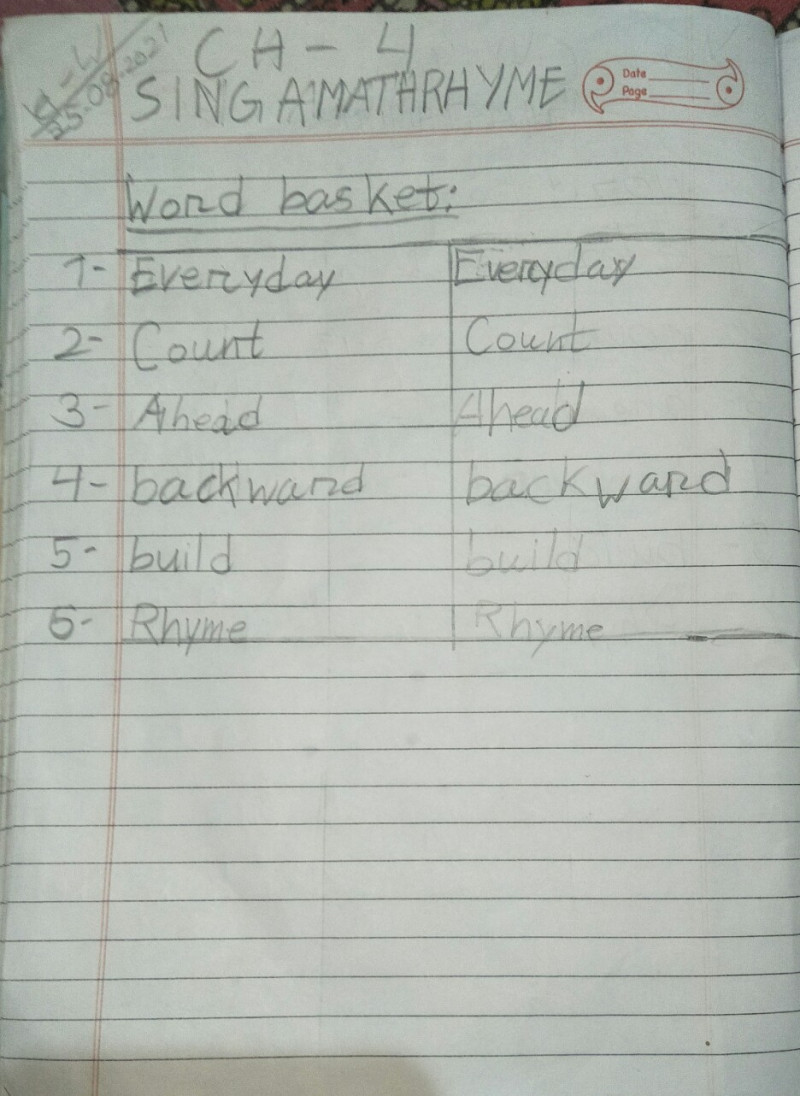 CH - 4
25.08.2021
SING A MATH RHYME
Date
Page
Word basket:
1- Everyday Everyday
2- Count Count
3- Ahead Ahead
4- backward backward
5- build build
6- Rhyme Rhyme